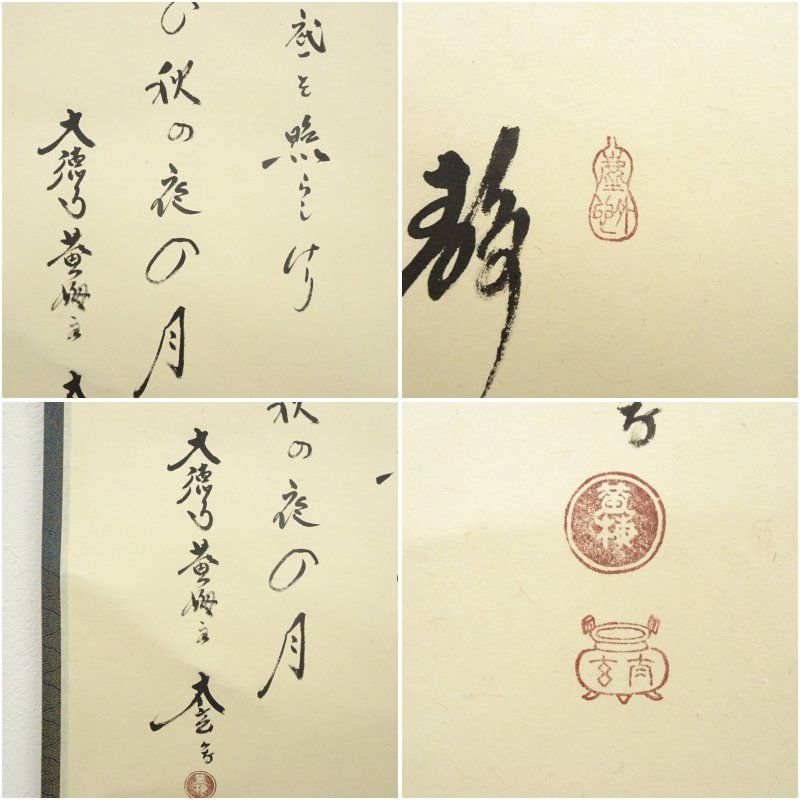 照らしけり
の秋の夜の月
大徳寺 黄梅主
静
秋の夜の月
大徳寺 黄梅主 太玄書
黄梅